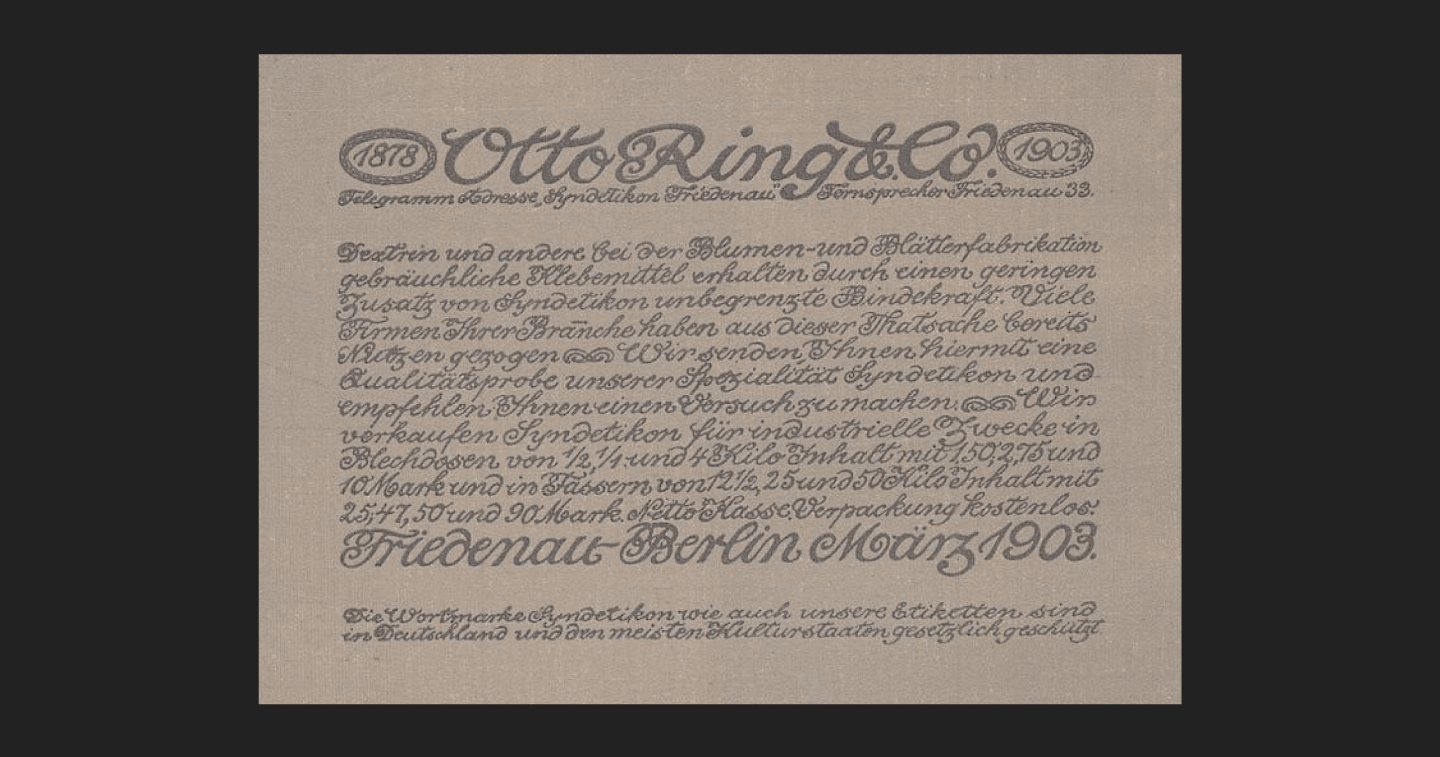 1878 Otto Ring & Co. 1903
Telegramm Adresse „Syndetikon Friedenau" Fernsprecher Friedenau 33.
Dextrin und andere bei der Blumen- und Blätterfabrikation
gebräuchliche Klebemittel erhalten durch einen geringen
Zusatz von Syndetikon unbegrenzte Bindekraft. Viele
Firmen Ihrer Branche haben aus dieser Thatsache bereits
Nutzen gezogen Wir senden Ihnen hiermit eine
Qualitätsprobe unserer Spezialität Syndetikon und
empfehlen Ihnen einen Versuch zu machen. Wir
verkaufen Syndetikon für industrielle Zwecke in
Blechdosen von 1/2, 1/1 und 4 Kilo Inhalt mit 1.50, 2,75 und
10 Mark und in Fässern von 12 1/2, 25 und 50 Kilo Inhalt mit
25, 47,50 und 90 Mark. Netto Kasse. Verpackung kostenlos.
Friedenau-Berlin März 1903.
Die Wortmarke Syndetikon wie auch unsere Etiketten sind
in Deutschland und den meisten Kulturstaaten gesetzlich geschützt